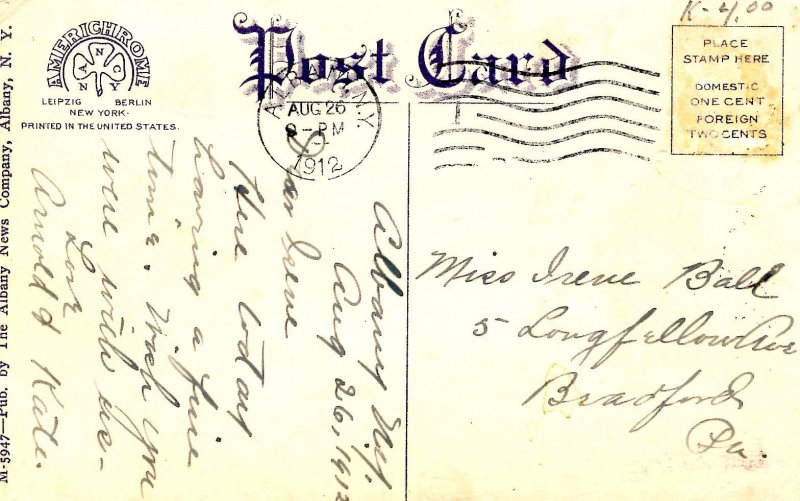 K-4.00
Post Card
AMERICHROME
ANCNY
LEIPZIG BERLIN
NEW YORK
PRINTED IN THE UNITED STATES.
PLACE
STAMP HERE
DOMESTIC
ONE CENT
FOREIGN
TWO CENTS
ALBANY, N.Y.
AUG 26
8-PM
1912
M-5947—Pub. by The Albany News Company, Albany, N. Y.
Albany N.Y.
Aug 26, 1912
Dear Irene
Here today
Having a fine
time. Wish you
were with us-
Love
Arnold & Kate.
Miss Irene Ball
5 Longfellow Ave
Bradford
Pa.